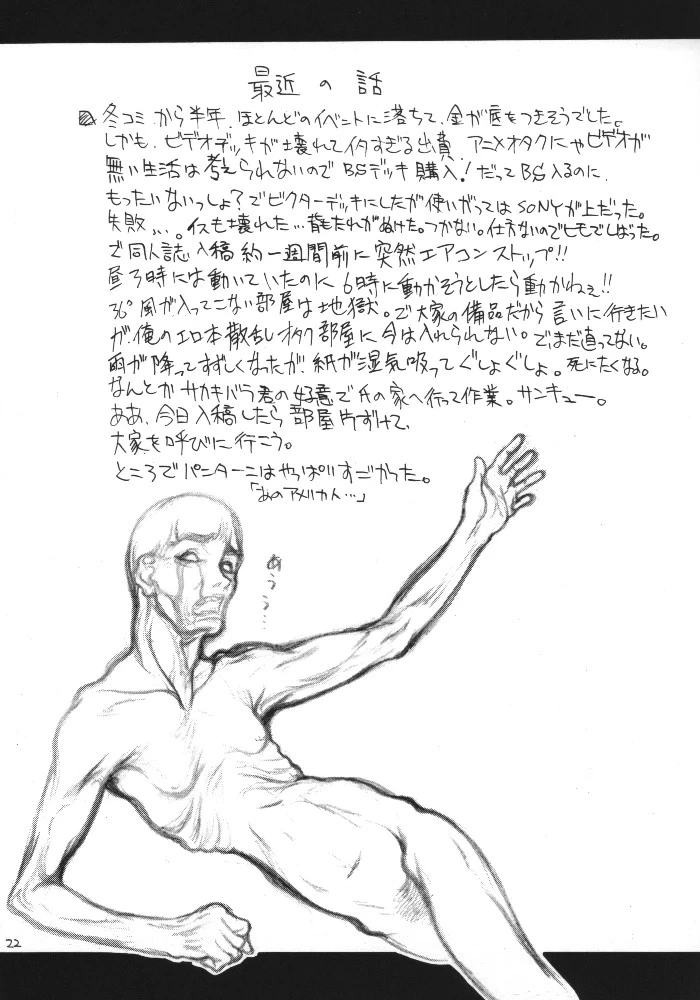 最近の話
冬コミから半年、ほとんどのイベントに落ちて、金が底をつきそうでした。
しかも、ビデオデッキが壊れてイタすぎる出費 アニメオタクにゃビデオが
無い生活は考えられないのでBSデッキ購入!だってBS入るのに、
もったいないっしょ?でビクターデッキにしたが使いがってはSONYが上だった。
失敗...。イスも壊れた…背もたれがぬけた。つかない。仕方ないのでヒモでしばった。
で同人誌入稿約一週間前に突然エアコンストップ!!
昼3時には動いていたのに6時に動かそうとしたら動かねぇ!!
36°風が入ってこない部屋は地獄。で大家の備品だから言いに行きたい
が、俺のエロ本散乱オタク部屋に今は入れられない。でまだ直ってない。
雨が降ってすずしくなったが、紙が湿気吸ってぐしょぐしょ。死にたくなる。
なんとかサカキバラ君の好意で氏の家へ行って作業。サンキュー。
ああ、今日入稿したら部屋片ずけて、
大家を呼びに行こう。
ところでパンターニはやっぱりすごかった。
「あのアメリカ人…」
あうう…
22